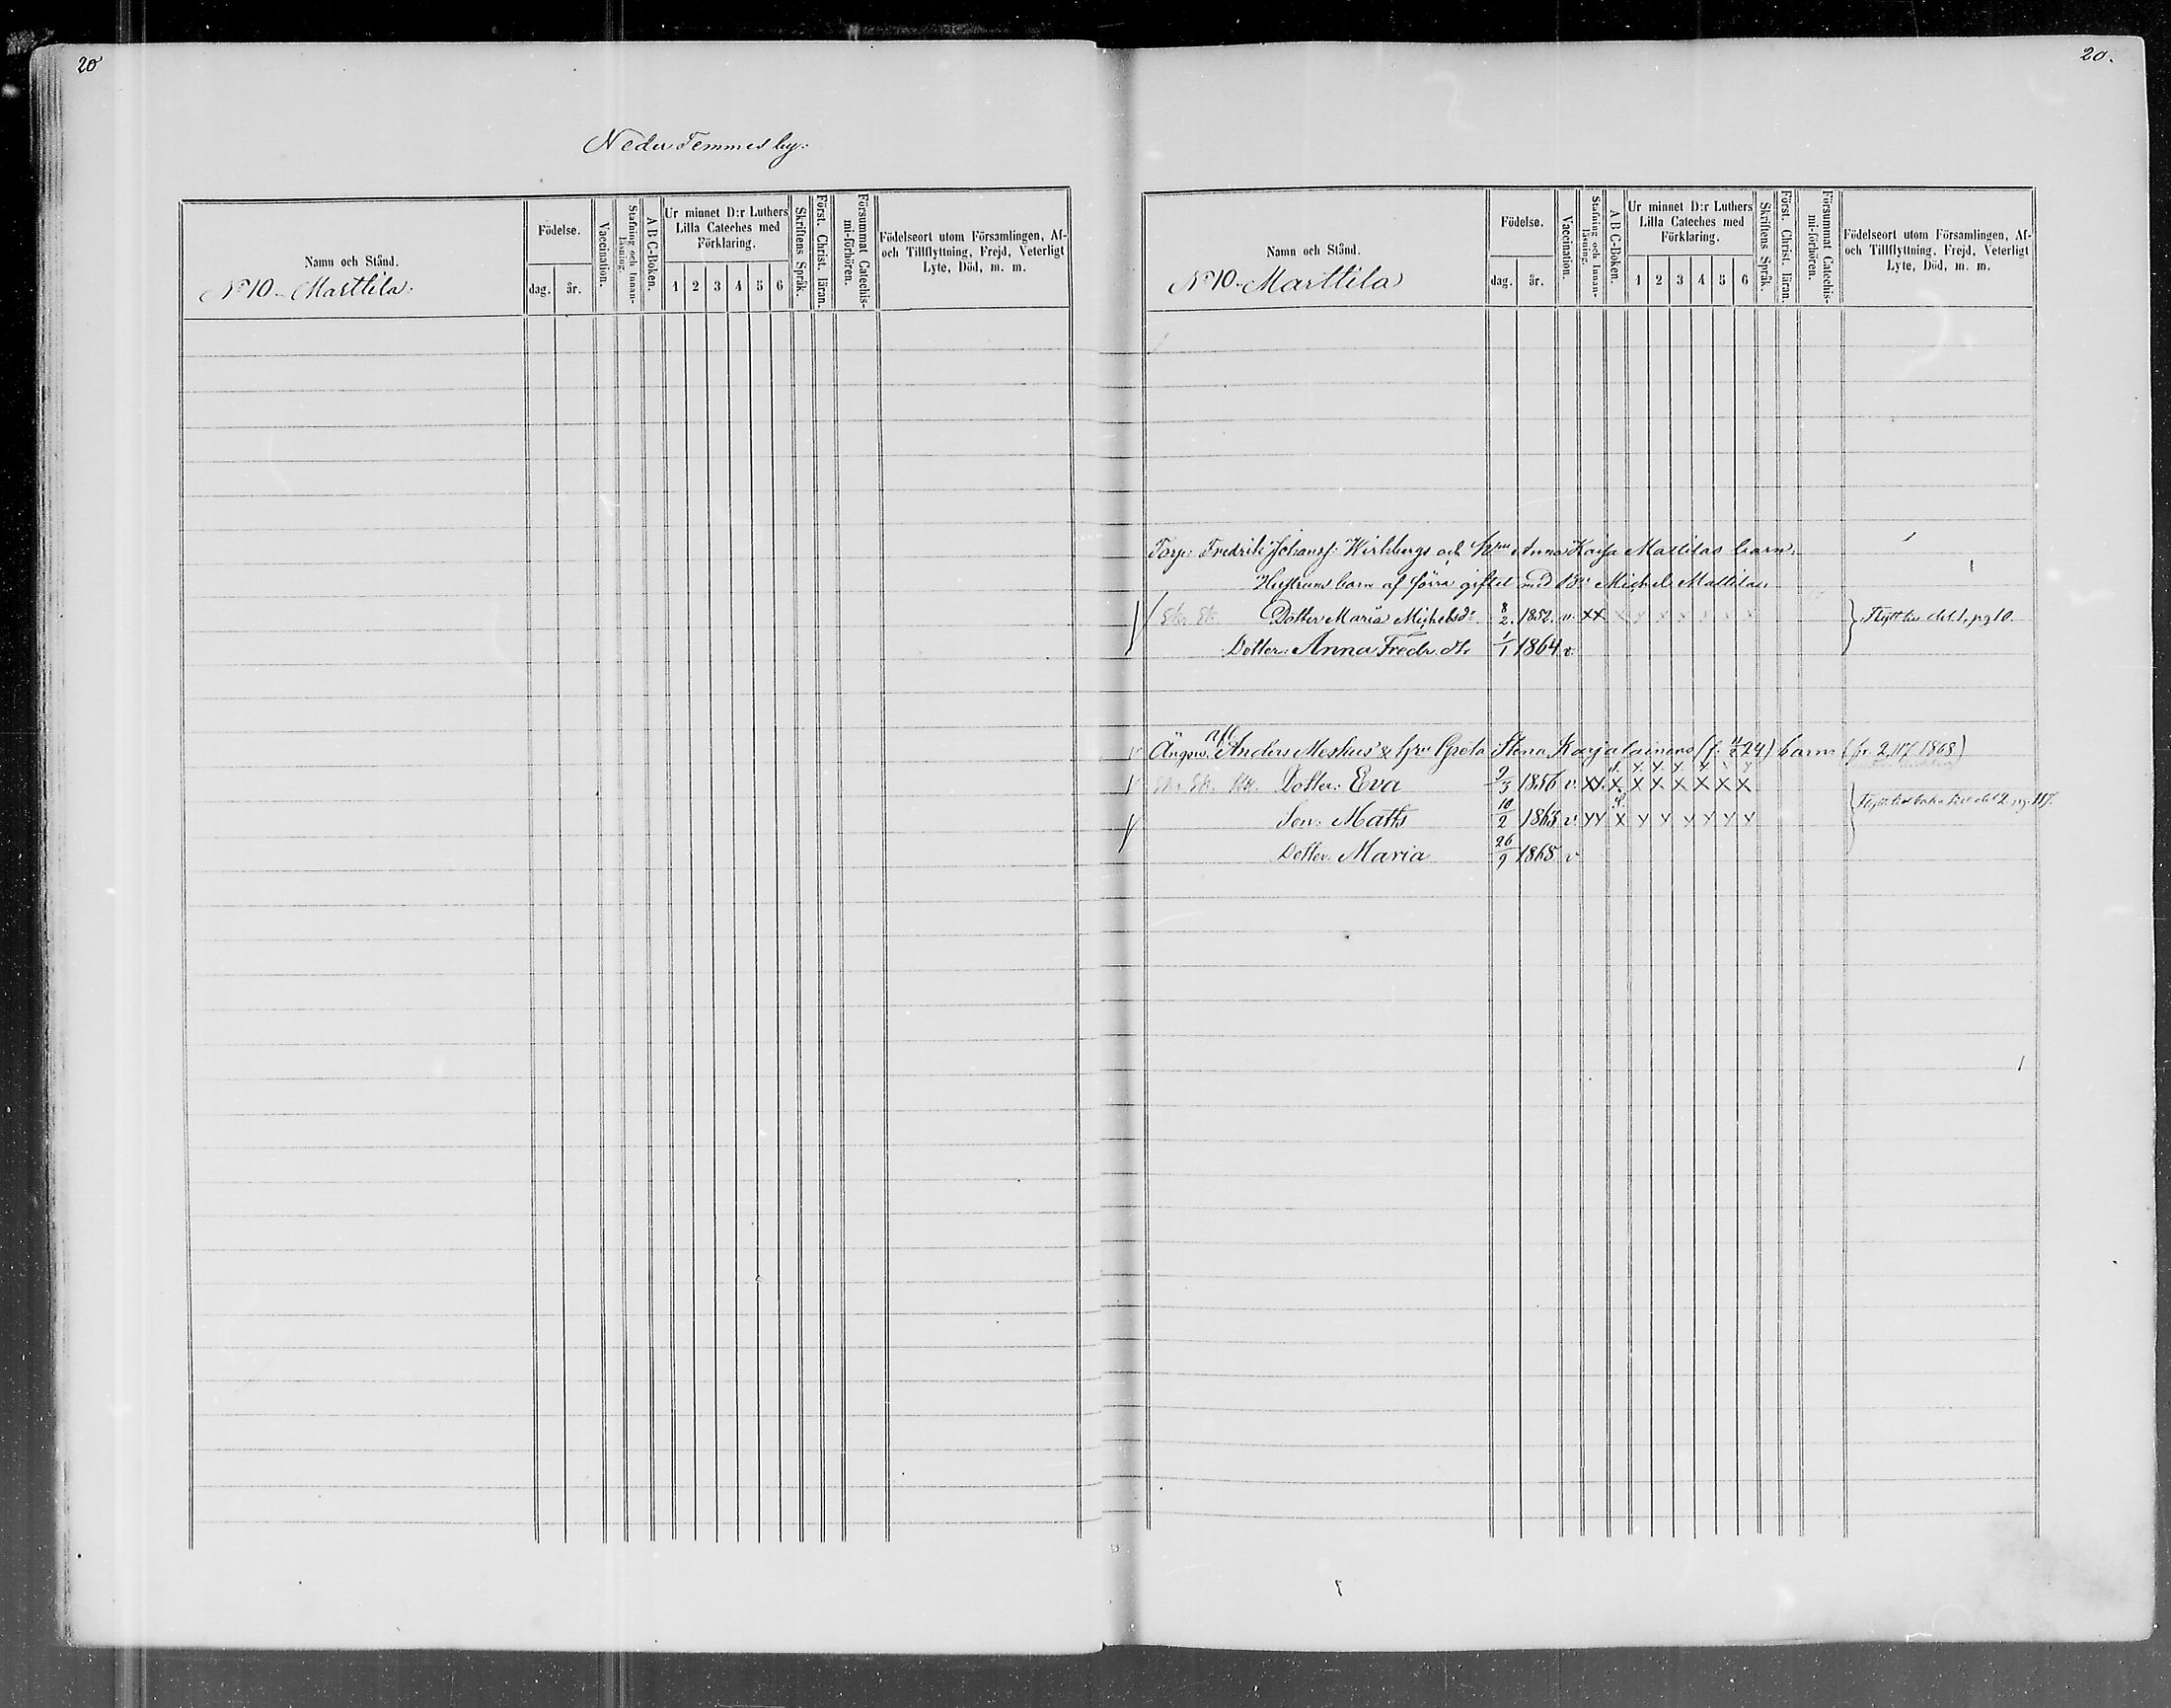 20
20.
Neder Temmes by:
Namn och Stånd.
No 10 - Marttila.
Födelse.
dag.
år.
Vaccination.
Stafning och Innan-
läsning.
A B C-Boken.
Ur minnet D:r Luthers
Lilla Cateches med
Förklaring.
1 2 3 4 5 6
Skriftens Språk.
Först. Christ. läran.
Försummat Catechis-
mi-förhören.
Födelseort utom Församlingen, Af-
och Tillflyttning, Frejd, Veterligt
Lyte, Död, m. m.
Namn och Stånd.
No 10. Marttila
Födelse.
dag.
år.
Vaccination.
Stafning och Innan-
läsning.
A B C-Boken.
Ur minnet D:r Luthers
Lilla Cateches med
Förklaring.
1 2 3 4 5 6
Skriftens Språk.
Först. Christ. läran.
Försummat Catechis-
mi-förhören.
Födelseort utom Församlingen, Af-
och Tillflyttning, Frejd, Veterligt
Lyte, Död, m. m.
Torp: Fredrik Johanss: Wirkbergs och h:rns Anna Kajsa Mattilas barn.
Hustruns barn af förra giftet med Bd: Michel Mattilas.
Dotter Maria Michelsd:r 8/2. 1852. v. x x x x x x x x x Flytt. tss del. 1, pg 10.
Dotter: Anna Fredr. dtr 1/1 1864 v.
Ängsw. Anders Meskus & hru Greta Stena Karjalainens (f. 11/2 24) barn (fr. 2.117 1868)
Dotter: Eva 9/3 1856 v. x x x x x x x x x
Son: Matts 10/2 1863 v. x x x x x x x x x Flytt. tillbaka till del 2. pg. 117.
Dotter Maria 26/9 1865 v